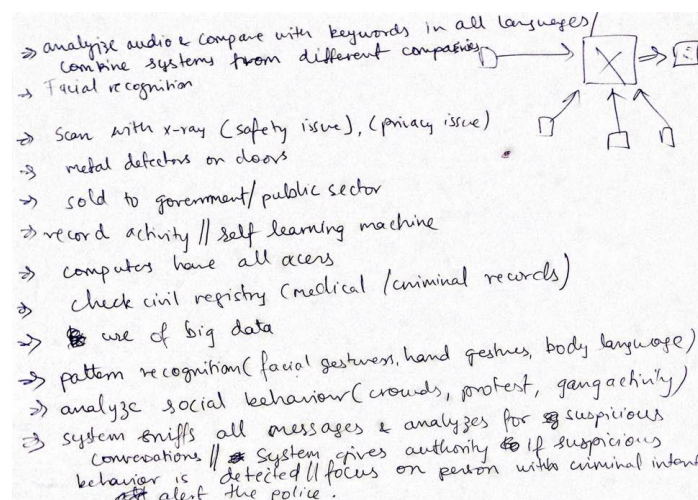 ⇒ analyize audio & compare with keywords in all languages/
combine systems from different companies
→ Facial recognition
⇒ Scan with x-ray (safety issue), (privacy issue)
⇒ metal detectors on doors
⇒ sold to government/public sector
⇒ record activity // self learning machine
⇒ computers have all acess
⇒ check civil registry (medical / criminal records)
⇒ use of big data
⇒ pattern recognition( facial gestures, hand gestures, body language)
⇒ analyze social behaviour (crowds, protest, gang activity)
⇒ system sniffs all messages & analyzes for suspicious
conversations // System gives authority if suspicious
behavior is detected // focus on person with criminal intent
alert the police.